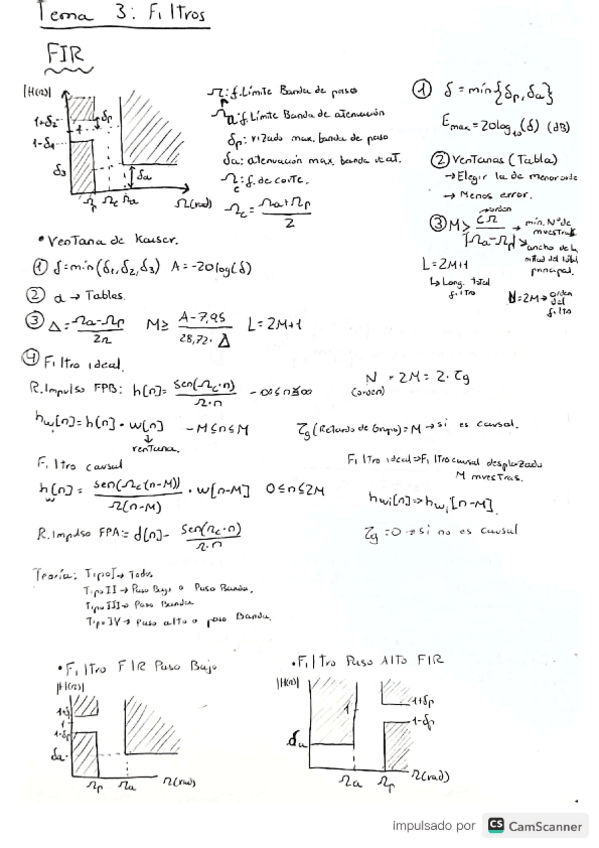 Tema 3: Filtros
FIR
|H(Ω)|
1+δ2
1
1-δ1
δ3
δp
δa
Ωp Ωc Ωa Ω(rad)
Ωp: f. Límite Banda de paso
Ωa: f. Límite Banda de atenuación
δp: rizado max. banda de paso
δa: atenuación max. banda de at.
Ωc: f. de corte.
Ωc = (Ωa+Ωp)/2
① δ = min{δp, δa}
Emax = 20log10(δ) (dB)
② Ventanas (Tabla)
→ Elegir la de menor orde
→ Menos error.
→ orden
③ M ≥ CΩ/|Ωa-Ωp| → min. Nº de muestras
→ ancho de la mitad del lóbulo principal.
L = 2M+1
↳ Long. total filtro
N = 2M → orden del filtro
• Ventana de Kaiser.
① δ = min(δ1, δ2, δ3) A = -20log(δ)
② α → Tablas.
③ Δ = (Ωa-Ωp)/2π M ≥ (A-7,95)/(28,72·Δ) L = 2M+1
④ Filtro ideal.
R. Impulso FPB: h[n] = sen(Ωc·n)/π·n -∞≤n≤∞
N = 2M = 2·τg
(orden)
hwi[n] = h[n]·w[n] -M≤n≤M
ventana.
τg (Retardo de Grupo) = M → si es causal.
Filtro causal
Filtro ideal → Filtro causal desplazado
M muestras.
hw[n] = sen(Ωc(n-M))/π(n-M) · w[n-M] 0≤n≤2M
hwi[n] → hwi[n-M]
R. Impulso FPA = d[n] - sen(Ωc·n)/π·n
τg = 0 → si no es causal
Teoría: Tipo I → Todos
Tipo II → Paso Bajo o Paso Banda.
Tipo III → Paso Banda
Tipo IV → Paso alto o paso Banda.
• Filtro FIR Paso Bajo
|H(Ω)|
1+δ
1
1-δp
δa
Ωp Ωa Ω(rad)
• Filtro Paso Alto FIR
|H(Ω)|
1
1+δp
1-δp
δa
Ωa Ωp Ω(rad)
impulsado por CS CamScanner